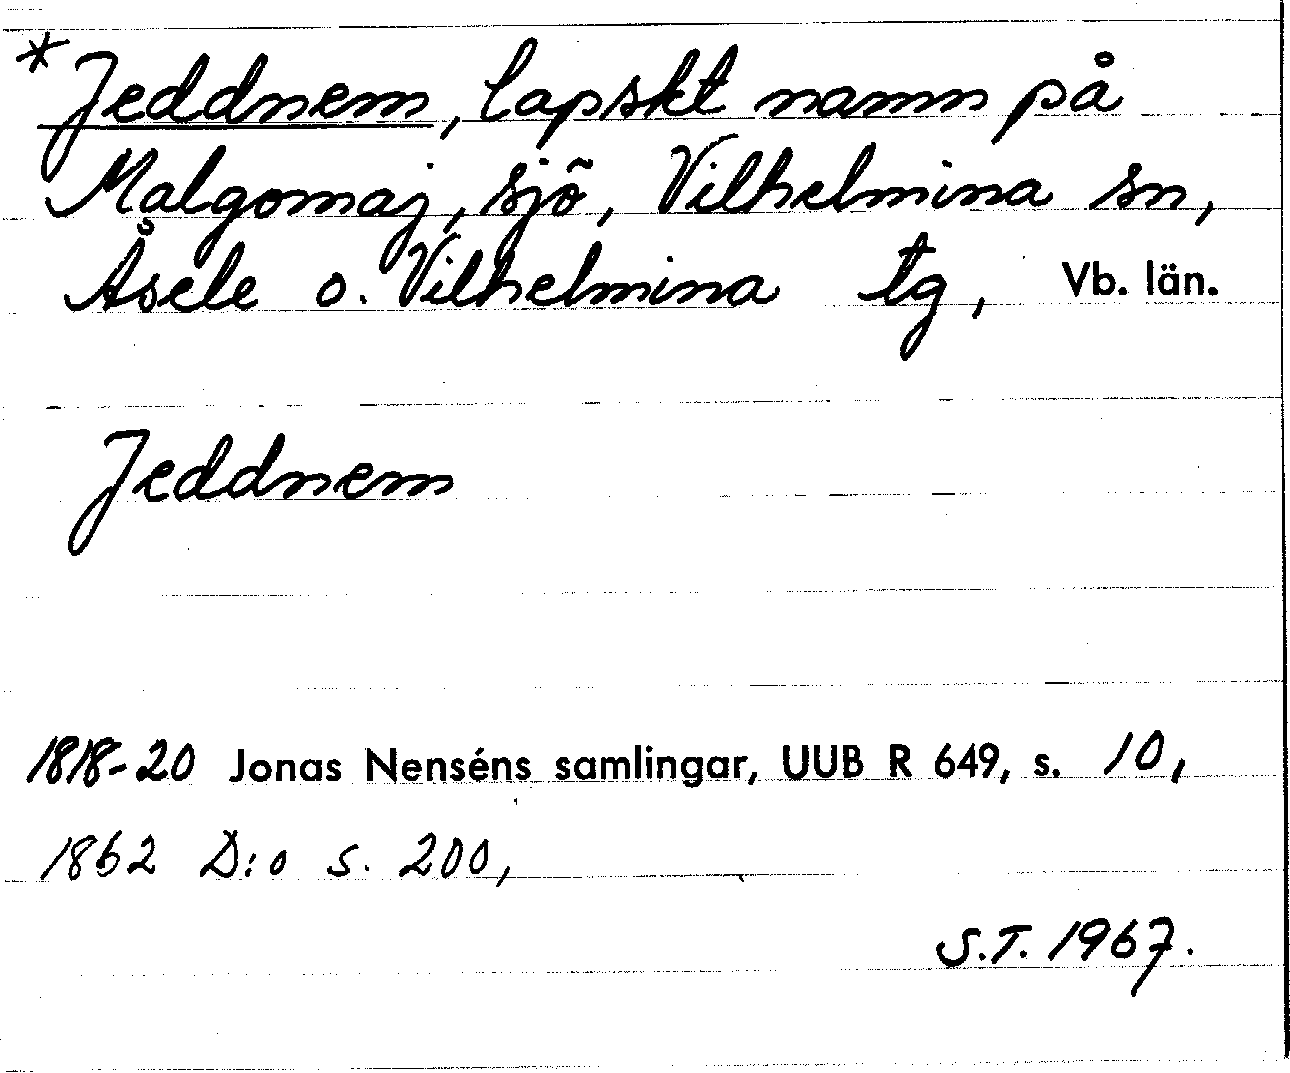 *Jeddnem, lapskt namn på
Malgomaj, sjö, Vilhelmina sn,
Åsele o. Vilhelmina tg, Vb. län.
Jeddnem
1818-20 Jonas Nenséns samlingar, UUB R 649, s. 10,
1862 D:o s. 200,
S.T. 1967.